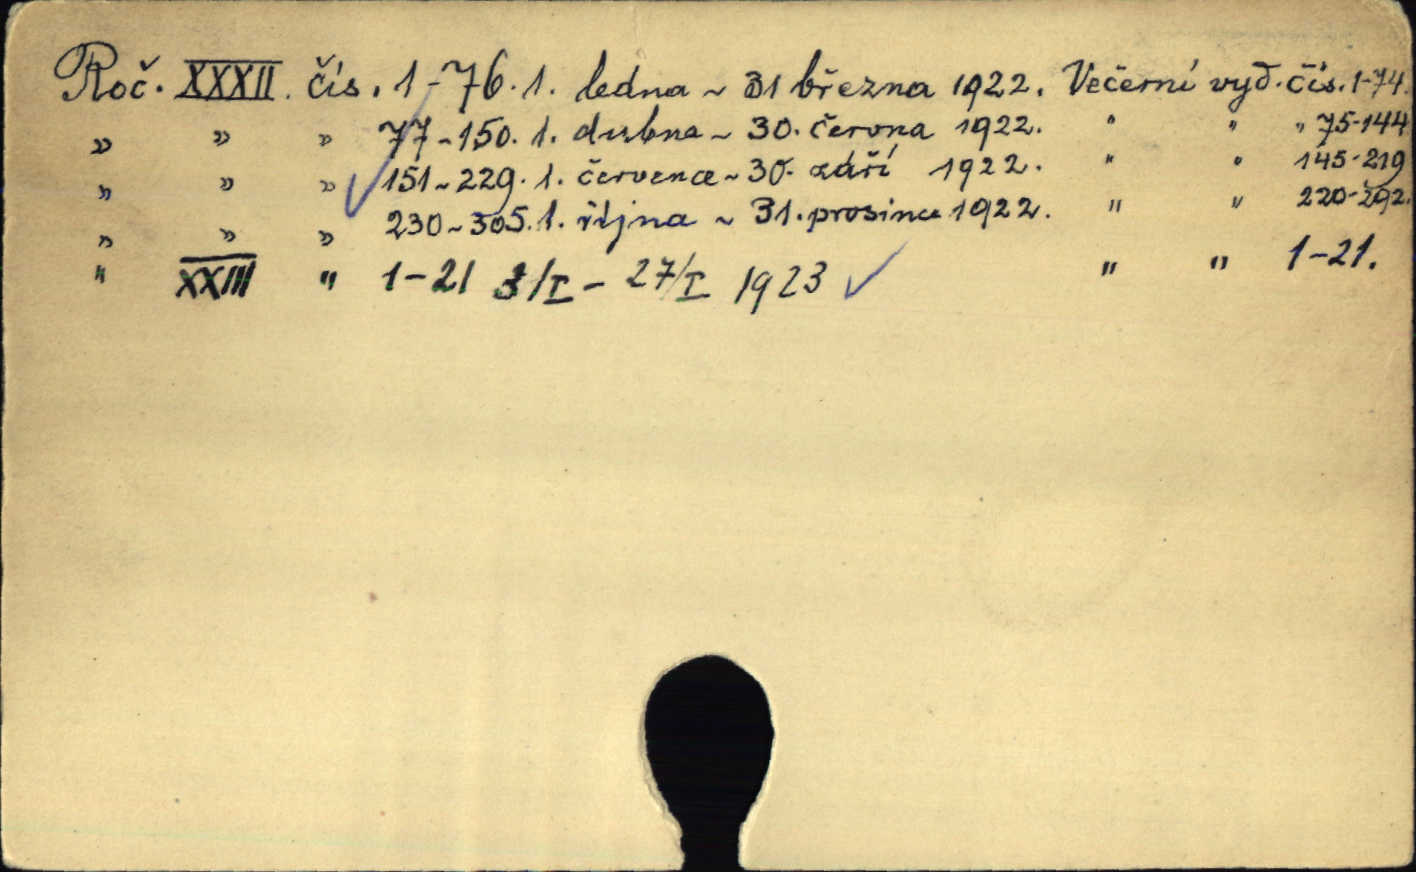 Roč. XXXII. čís. 1-76. 1. ledna ~ 31 března 1922. Večerní vyd. čís. 1-74.
" " " 77-150. 1. dubna ~ 30. června 1922. " " " 75-144
" " " 151~229. 1. července ~ 30. září 1922. " " 145-219
" " " 230~305. 1. října ~ 31. prosince 1922. " " 220-292.
" XXIII " 1-21 3/I - 27/I 1923 " " 1-21.